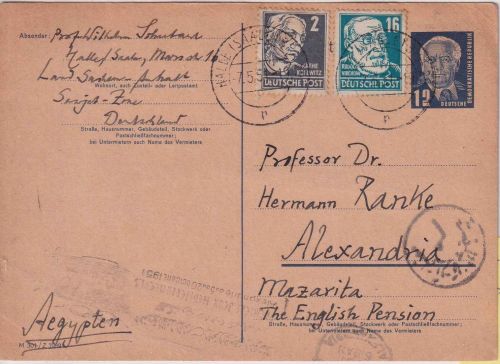 Absender: Prof. Wilhelm
Halle (Saale),
Land Sachsen-Anhalt
Wohnort, auch Zustell- oder Leitpostamt
Deutschland
Straße, Hausnummer, Gebäudeteil, Stockwerk oder
Postschließfachnummer;
bei Untermietern auch Name des Vermieters
HALLE (SAALE)
2
KÄTHE KOLLWITZ
DEUTSCHE POST
16
RUDOLF VIRCHOW
DEUTSCHE POST
12
DEUTSCHE
DEMOKRATISCHE REPUBLIK
Professor Dr.
Hermann Ranke
Alexandria
Mazarita
The English Pension
Straße, Hausnummer, Gebäudeteil, Stockwerk oder Postschließfachnummer;
bei Untermietern auch Name des Vermieters
Aegypten